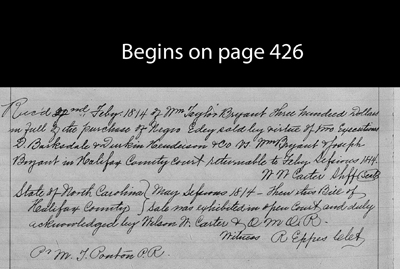 Begins on page 426
Rec'd 22nd Feby 1814 of Wm Taylor Bryant Three hundred Dollars
in full of the purchase of Negro Edey sold by virtue of two Executions
D. Barksdale & Durkin Henderson & Co vs Wm Bryant & Joseph
Bryant in Halifax County Court returnable to Feby Sessions 1814.
W W Carter Shff
State of North Carolina } May Sessions 1814 - Then this Bill of
Halifax County } Sale was exhibited in open Court and duly
acknowledged by Wilson W. Carter & O M O R.
Witness R Eppes Clk
Pr M. T. Ponton P.R.